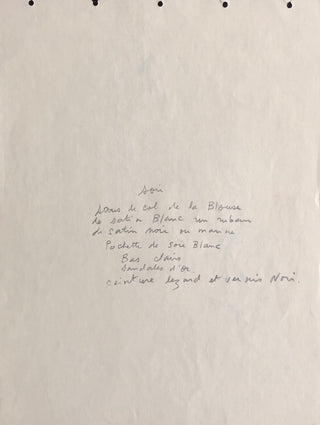 Soir
sous le col de la Blouse
de satin Blanc un ruban
de satin noir ou marine
Pochette de soie Blanc
Bas clairs
Sandales d'or
ceinture lezard et vernis Noir.